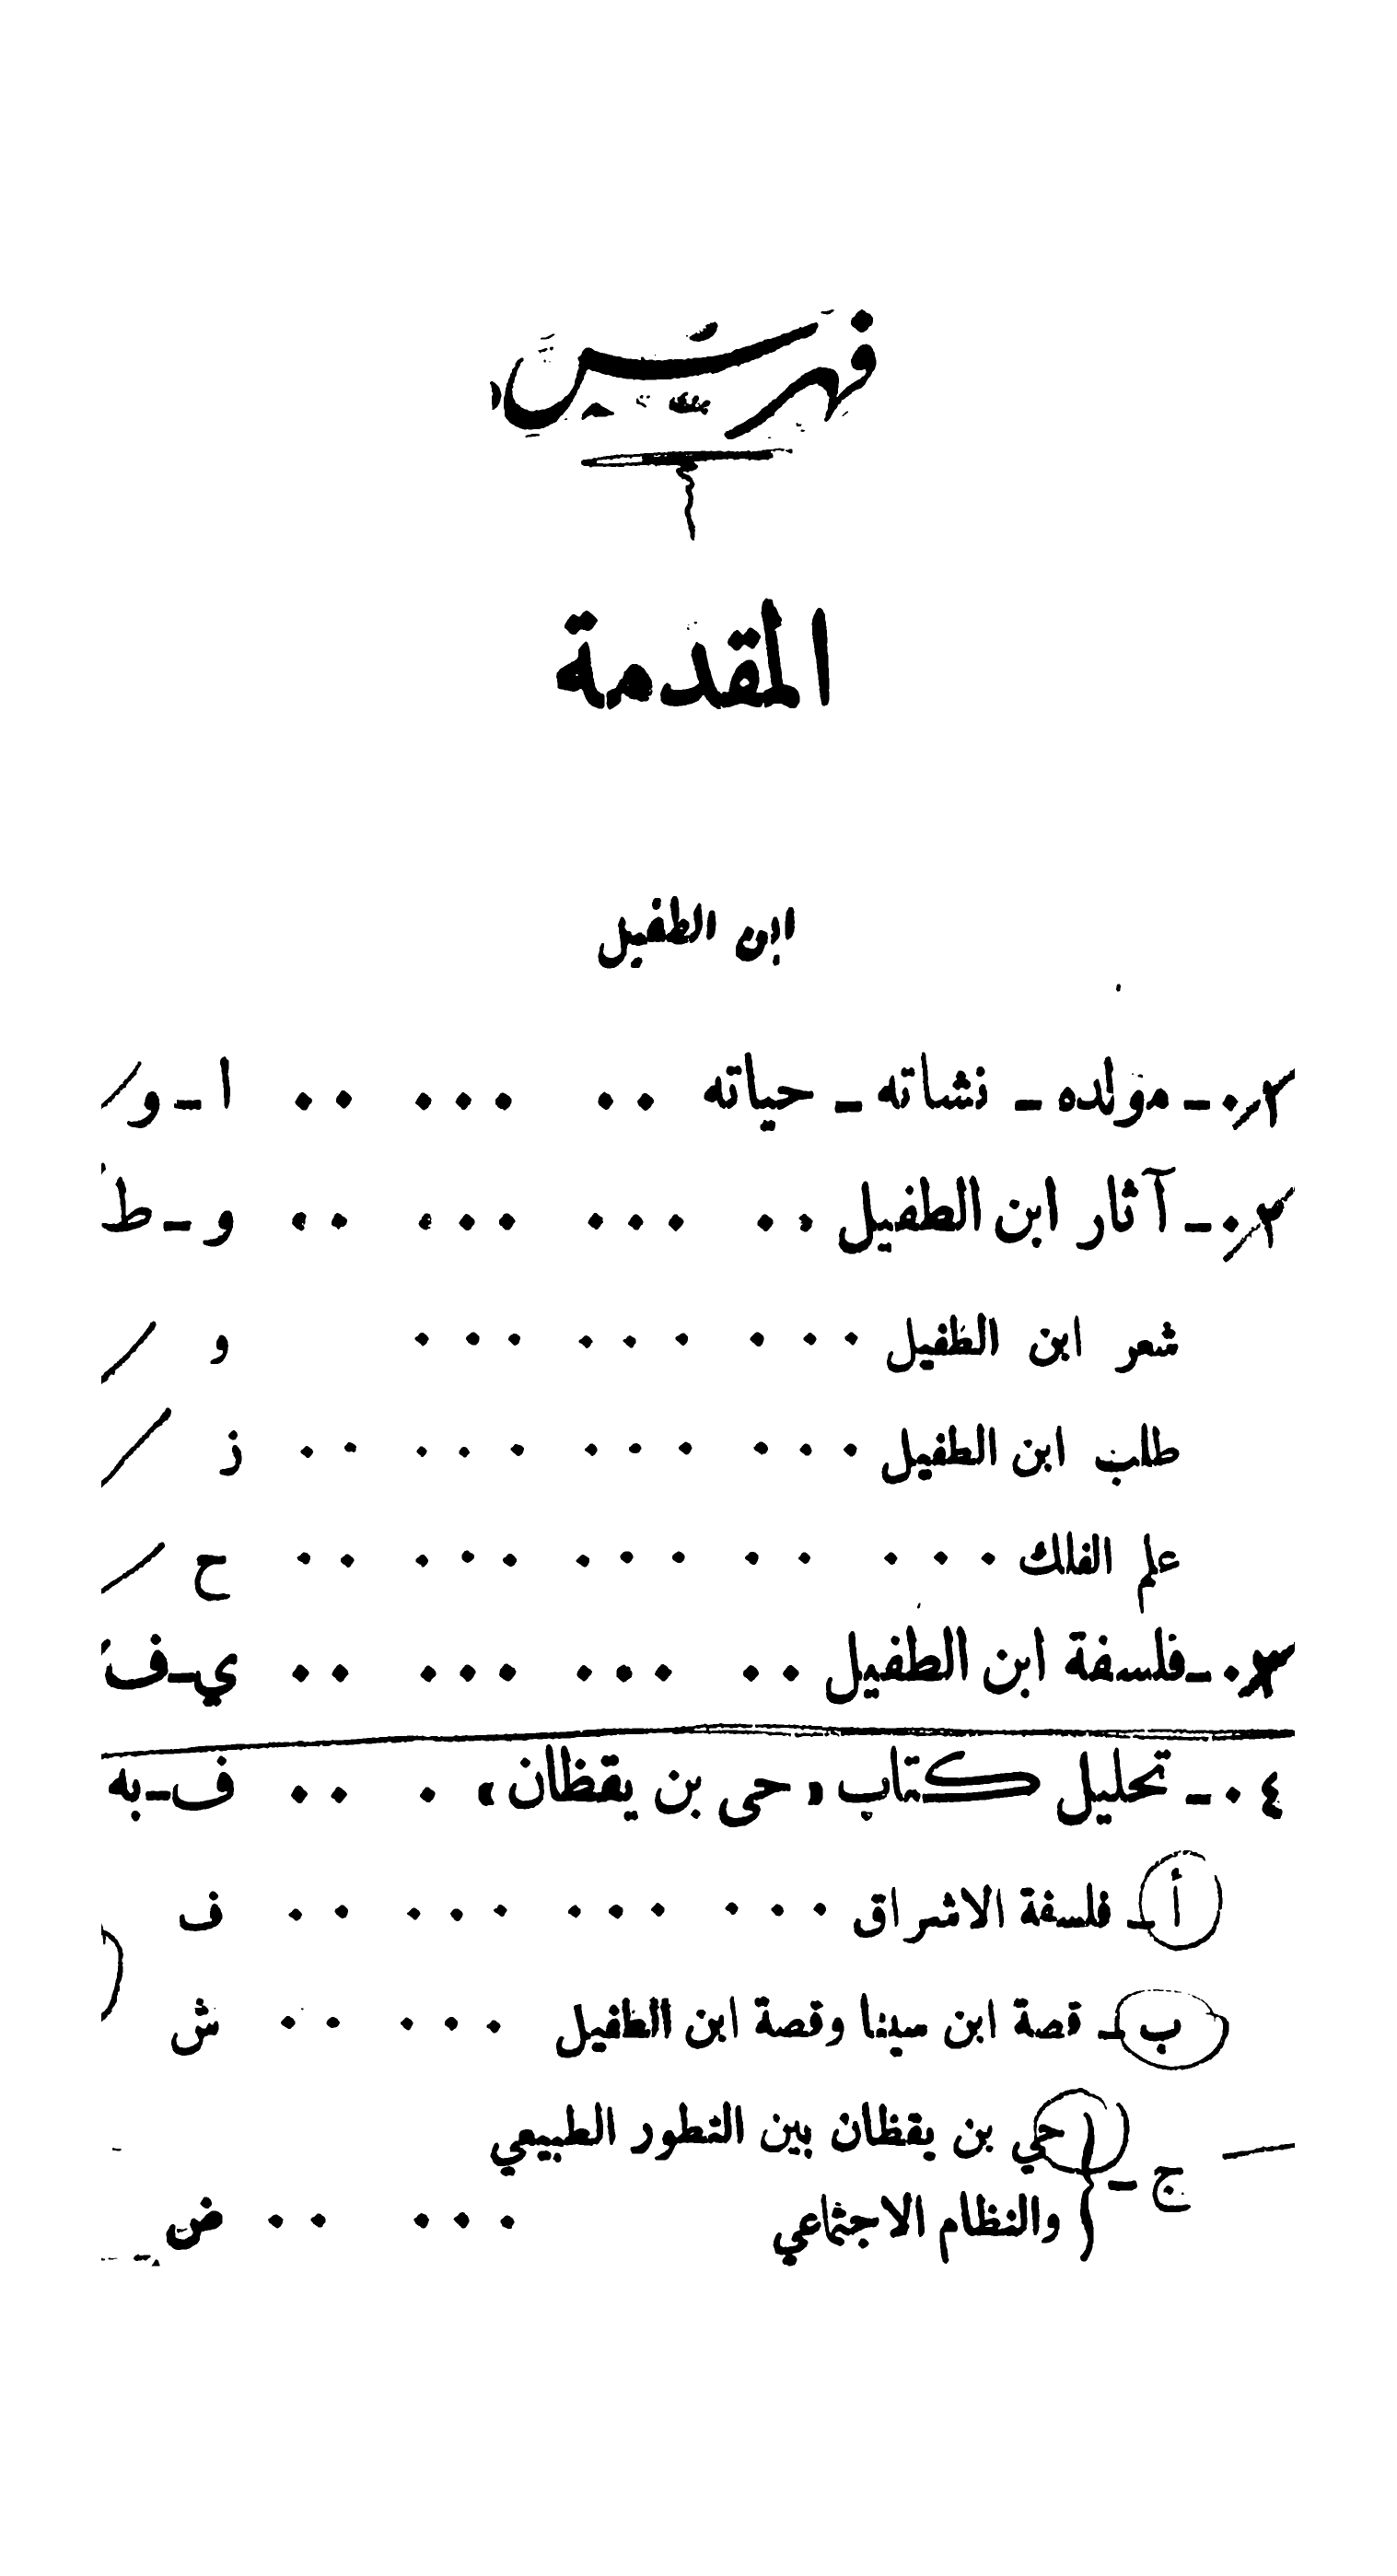 فهرس
المقدمة
ابن الطفيل
١ .ـ مولده ـ نشاته ـ حياته .. ... .. ا ـ و
٢ .ـ آثار ابن الطفيل .. ... ... .. و ـ ط
شعر ابن الطفيل ... ... ... و
طلب ابن الطفيل ... ... ... .. ز
علم الفلك ... .. ... ... .. ح
٣ .ـ فلسفة ابن الطفيل .. ... ... .. ي ـ ف
٤ .ـ تحليل كتاب « حى بن يقظان » . .. ف ـ به
أ ـ فلسفة الاشراق ... ... ... .. ف
ب ـ قصة ابن سينا وقصة ابن الطفيل ... .. ش
ج ـ { حي بن يقظان بين التطور الطبيعي
والنظام الاجتماعي ... .. ض